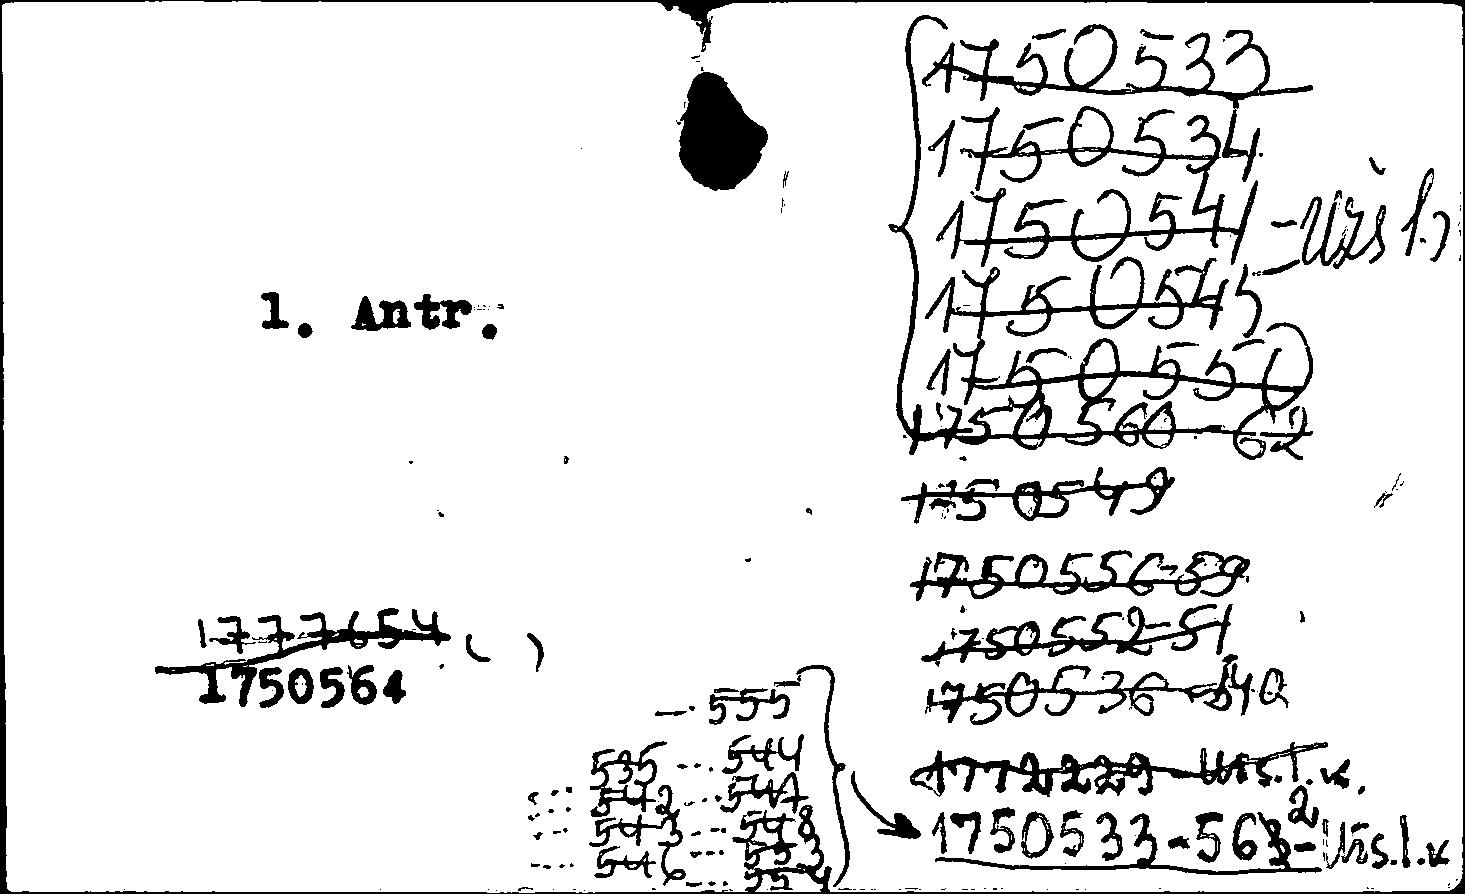 1750533
1750534
1750541 - Urs l.v
1750545
1750550
1750560 - 62
1750549
1. Antr.
1750556-59
1750552-51
1750536-540
1777654 ( )
1750564
--- 555
535 --- 544
--- 542 --- 547
--- 543 --- 548
--- 546 --- 553
--- 554
1772229 - Urs.l.v.
1750533-562 - Urs.l.v